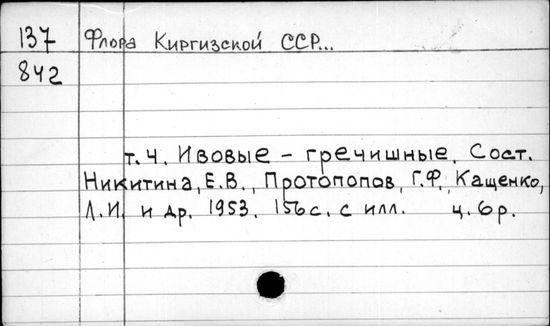 137 Флора Киргизской ССР...
842
т.4. Ивовые - гречишные. Сост.
Никитина, Е.В., Протопопов, Г.Ф., Кащенко,
Л.И. и др. 1953. 156с. с илл. ц. 6р.